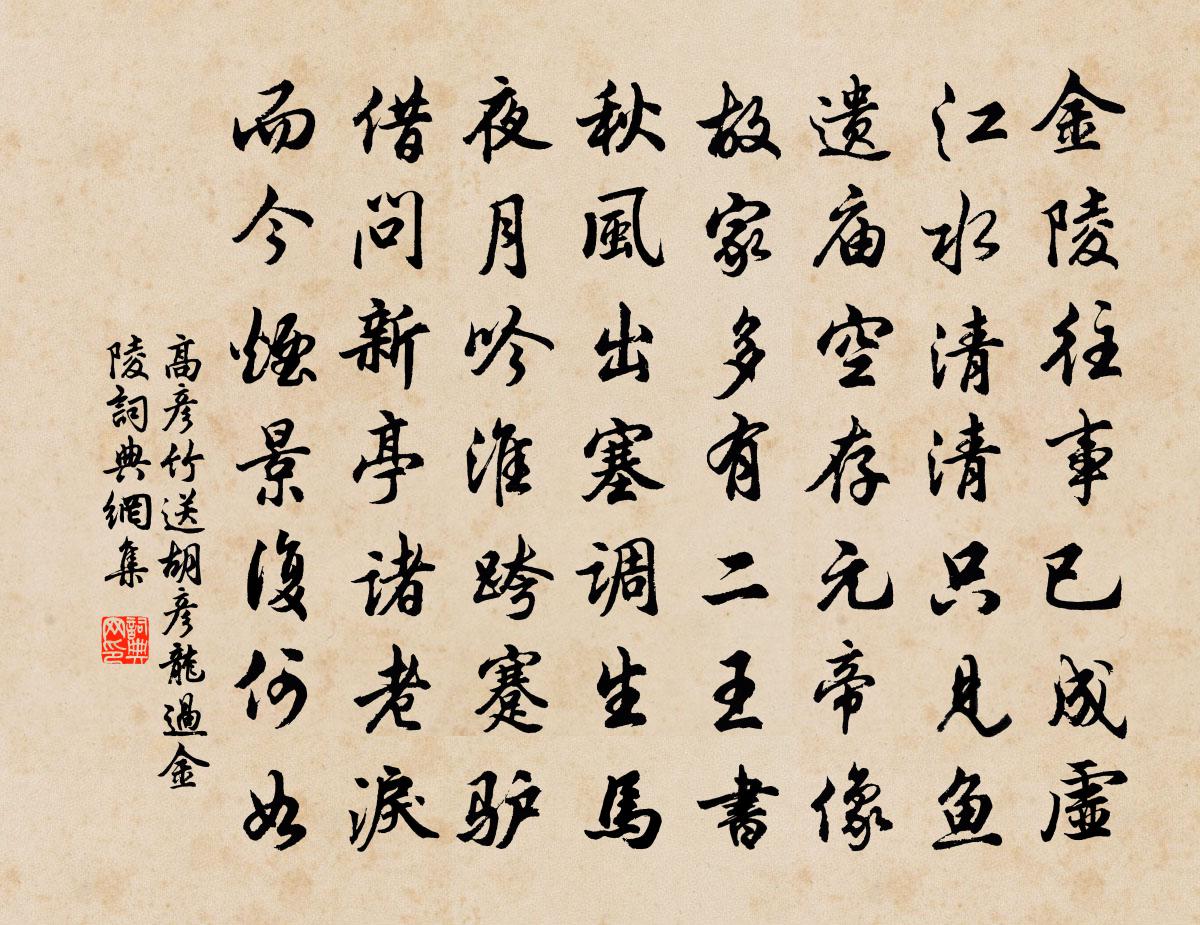 金陵往事已成虛
江水清清只見鱼
遗庙空存元帝像
故家多有二王書
秋風出塞调生馬
夜月吟淮跨蹇驴
借问新亭诸老淚
而今煙景復何如
高彦竹送胡彦龍過金
陵詞典網集
詞典
网印